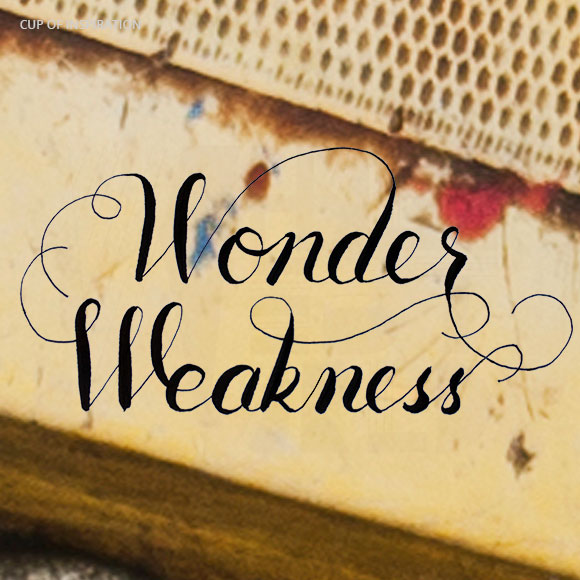 CUP OF INSPIRATION
Wonder
Weakness